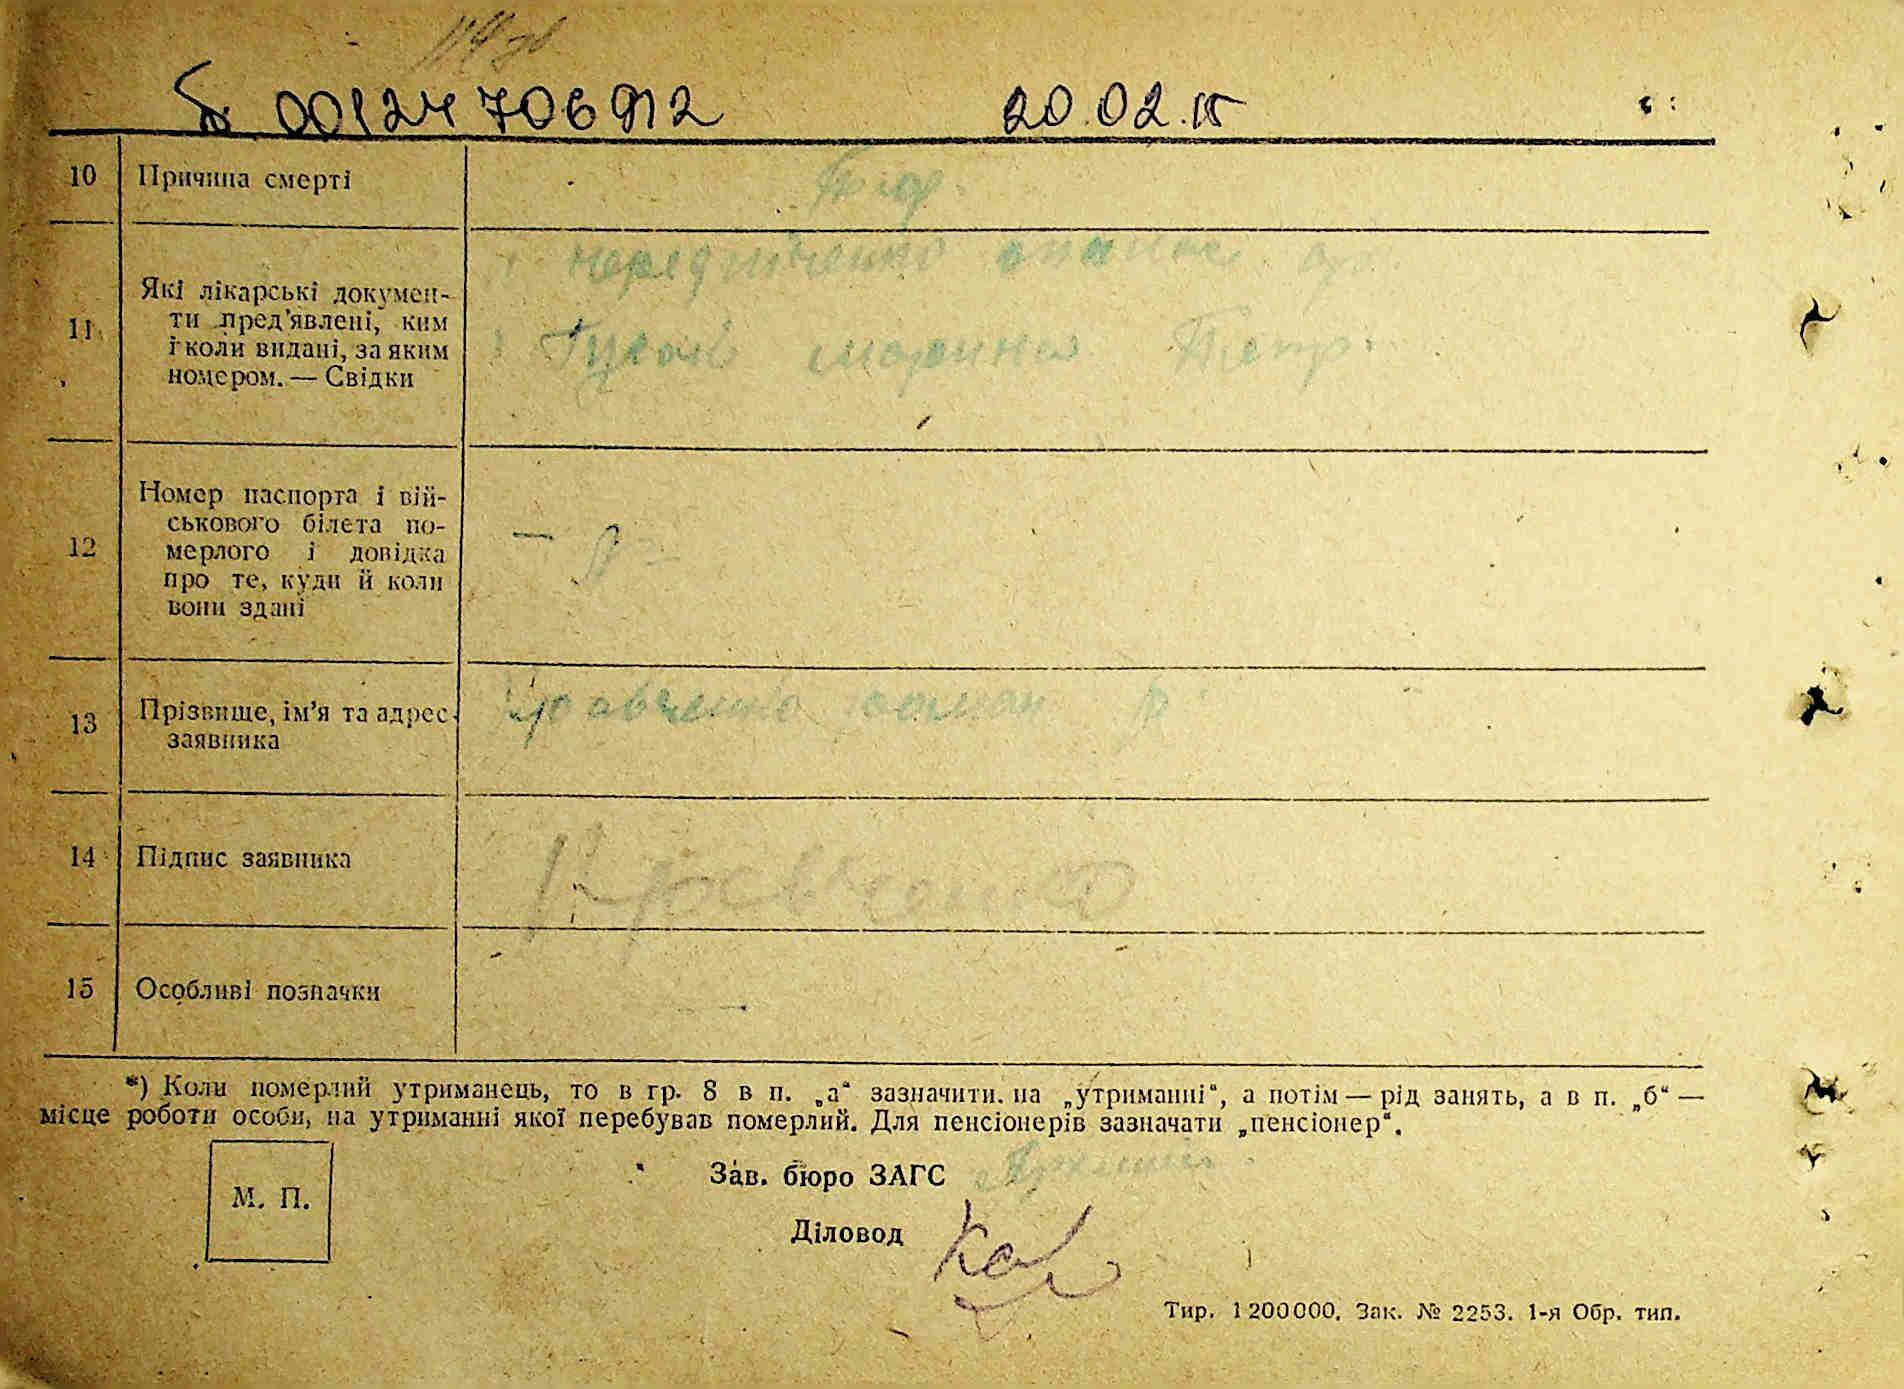 00124706912 20.02.15
10 Причина смерті
11 Які лікарські докумен-
ти пред'явлені, ким
і коли видані, за яким
номером. — Свідки
12 Номер паспорта і вій-
ськового білета по-
мерлого і довідка
про те, куди й коли
вони здані
13 Прізвище, ім'я та адрес
заявника
Кравченко роман
14 Підпис заявника
Кравченко
15 Особливі позначки
*) Коли померлий утриманець, то в гр. 8 в п. „а“ зазначити. на „утриманні“, а потім — рід занять, а в п. „б“ —
місце роботи особи, на утриманні якої перебував померлий. Для пенсіонерів зазначати „пенсіонер“.
М. П.
Зав. бюро ЗАГС
Діловод
Тир. 1 200 000. Зак. № 2253. 1-я Обр. тип.